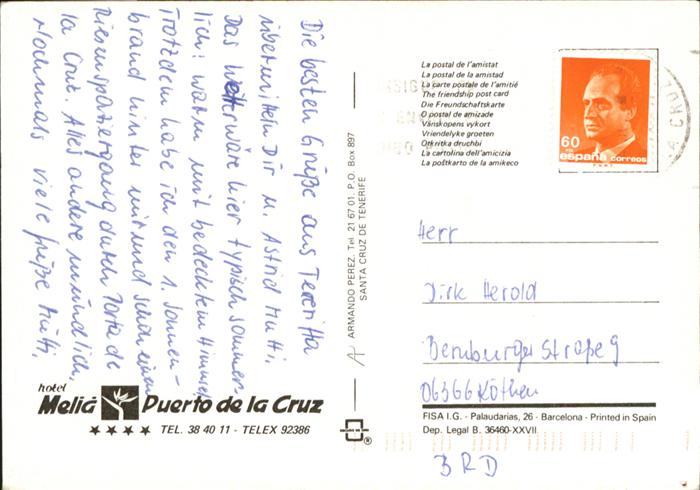 Die besten Grüße aus Teneriffa
übermitteln Dir u. Astrid Mutti.
Das Wetter wäre hier typisch sommer-
lich: warm mit bedecktem Himmel
Trotzdem habe ich den 1. Sonnen-
brand hinter mir und schon einen
Riesenspaziergang durch Porto de
la Cruz. Alles andere mündlich.
Nochmals viele Grüße Mutti.
hotel
Meliá Puerto de la Cruz
TEL. 38 40 11 - TELEX 92386
ARMANDO PEREZ. Tel. 21 67 01. P.O. Box 897
SANTA CRUZ DE TENERIFE
La postal de l'amistat
La postal de la amistad
La carte postale de l'amitié
The friendship post card
Die Freundschaftskarte
O postal de amizade
Vänskapens vykort
Vriendelyke groeten
Otkritka druchbi
La cartolina dell'amicizia
La poŝtkarto de la amikeco
60
PTS
españa correos
Herr
Dirk Herold
Bernburger Straße 9
06366 Köthen
FISA I.G. - Palaudarias, 26 - Barcelona - Printed in Spain
Dep. Legal B. 36460-XXVII
BRD